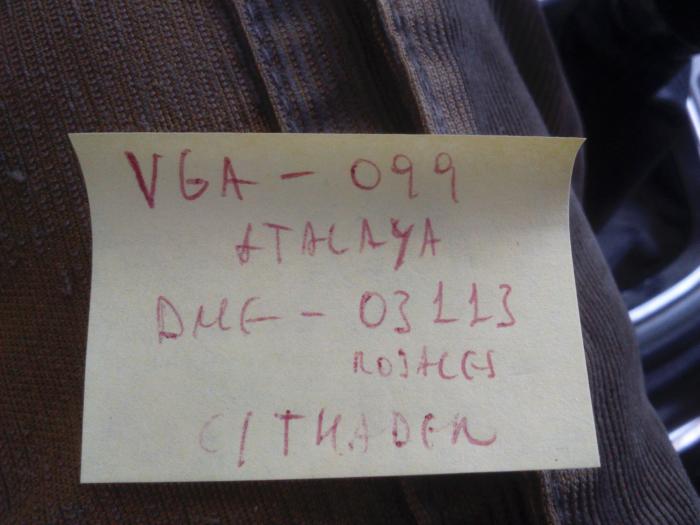 VGA - 099
ATALAYA
DME - 03113
ROSALES
C/ THADER